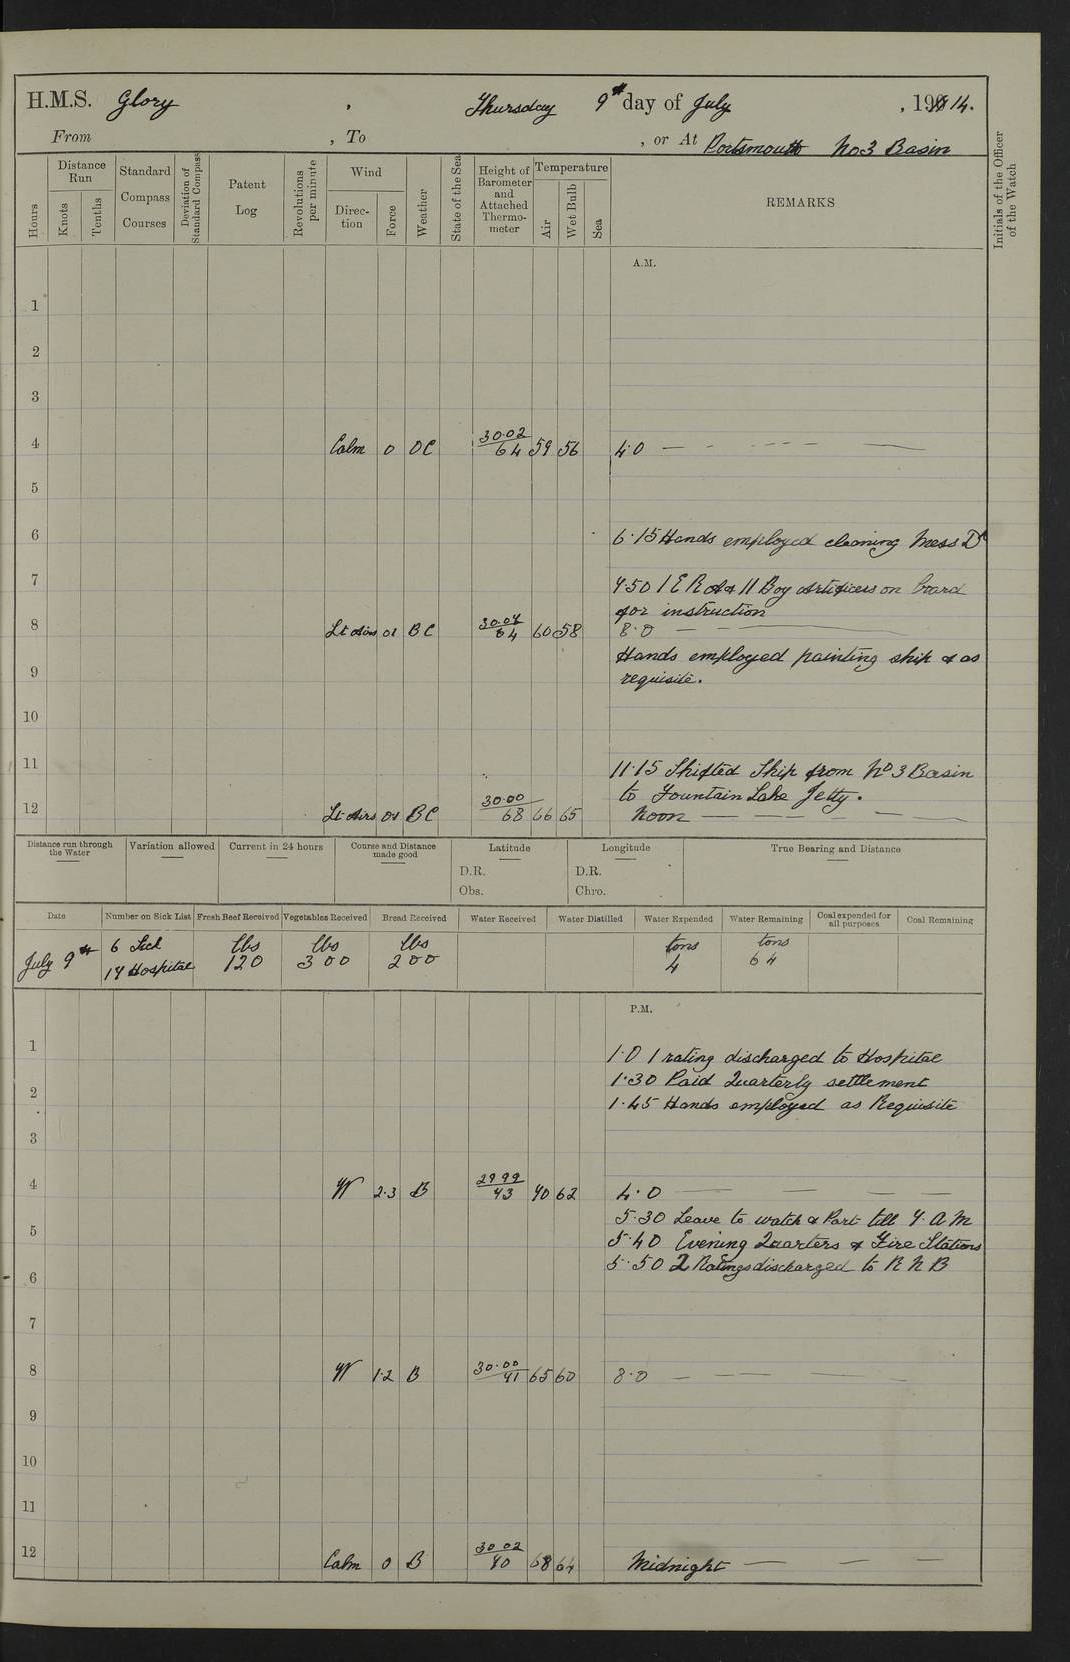 H.M.S. Glory , Thursday 9th day of July , 1914.
From , To , or At Portsmouth No3 Basin
Hours
Distance Run
Knots
Tenths
Standard Compass Courses
Deviation of Standard Compass
Patent Log
Revolutions per minute
Wind
Direction
Force
Weather
State of the Sea
Height of Barometer and Attached Thermometer
Temperature
Air
Wet Bulb
Sea
REMARKS
Initials of the Officer of the Watch
A.M.
1
2
3
4 Calm 0 OC 30.02 64 59 56 4.0
5
6 6.15 Hands employed cleaning Mess Dk
7 7.50 1 E R A & 11 Boy Artificers on board
for instruction
8 Lt Airs 01 BC 30.04 64 60 58 8.0
Hands employed painting ship & as
9 requisite.
10
11 11.15 Shifted Ship from No 3 Basin
to Fountain Lake Jetty.
12 Lt Airs 01 BC 30.00 68 66 65 Noon
Distance run through the Water
Variation allowed
Current in 24 hours
Course and Distance made good
Latitude
D.R.
Obs.
Longitude
D.R.
Chro.
True Bearing and Distance
Date
Number on Sick List
Fresh Beef Received
Vegetables Received
Bread Received
Water Received
Water Distilled
Water Expended
Water Remaining
Coal expended for all purposes
Coal Remaining
July 9th
6 Sick
17 Hospital
lbs 120
lbs 300
lbs 200
tons 4
tons 64
P.M.
1 1.0 1 rating discharged to Hospital
1.30 Paid Quarterly settlement
2 1.45 Hands employed as Requisite
3
4 W 2.3 B 29.99 73 70 62 4.0
5.30 Leave to watch & Part till 7. AM
5 5.40 Evening Quarters & Fire Stations
5.50 2 Ratings discharged to R N B
6
7
8 W 1.2 B 30.00 71 65 60 8.0
9
10
11
12 Calm 0 B 30.02 70 68 64 Midnight